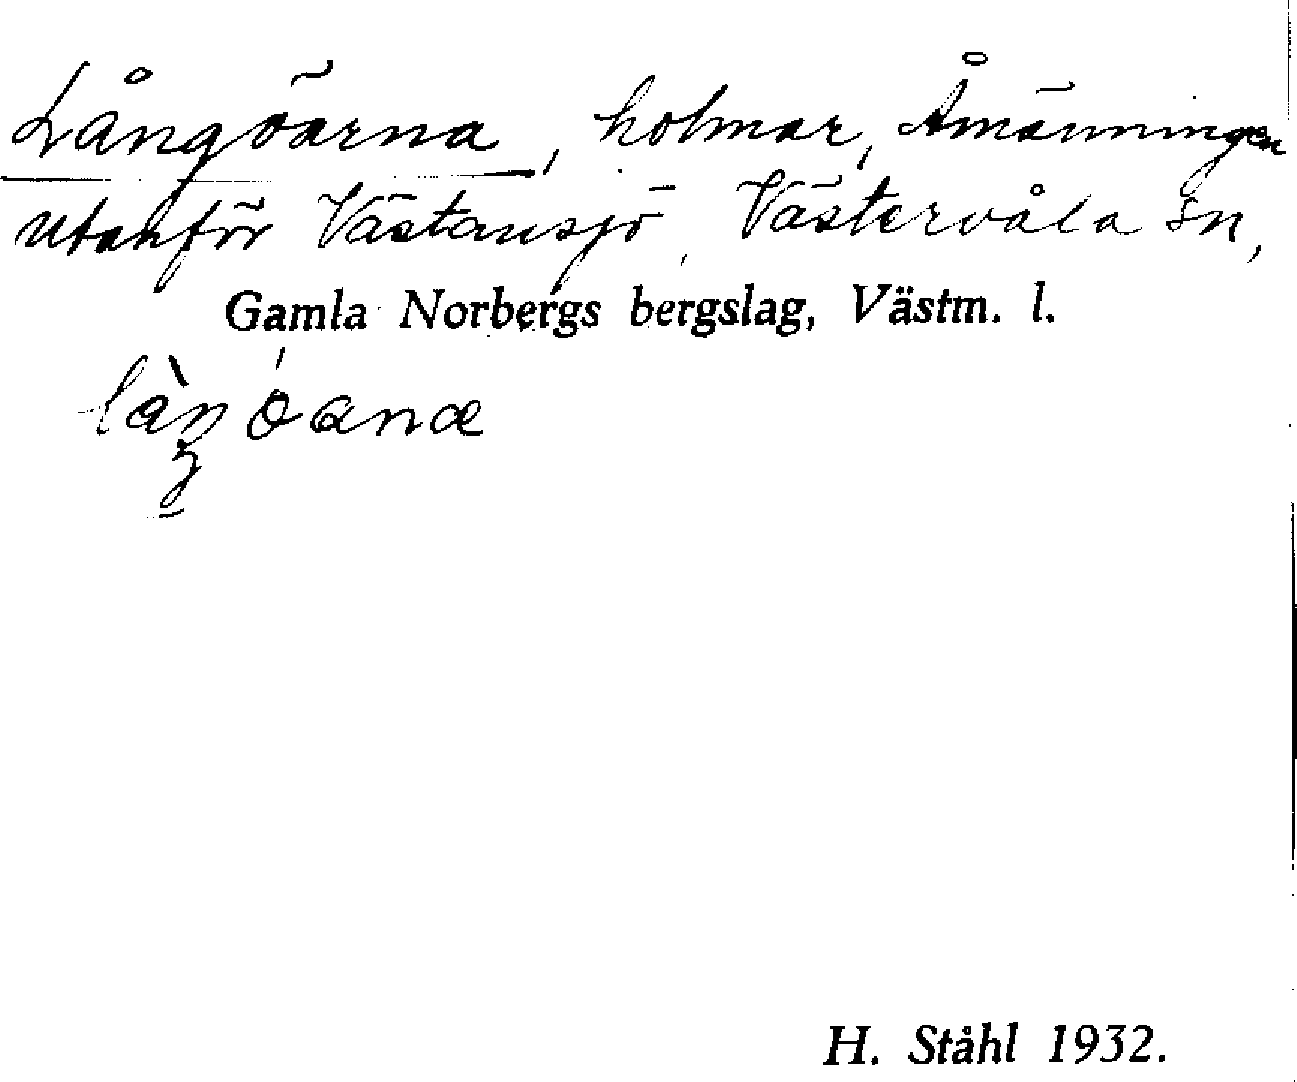 Långöarna, holmar, Åmänningen
utanför Västansjö, Västervåla sn,
Gamla Norbergs bergslag, Västm. l.
H. Ståhl 1932.